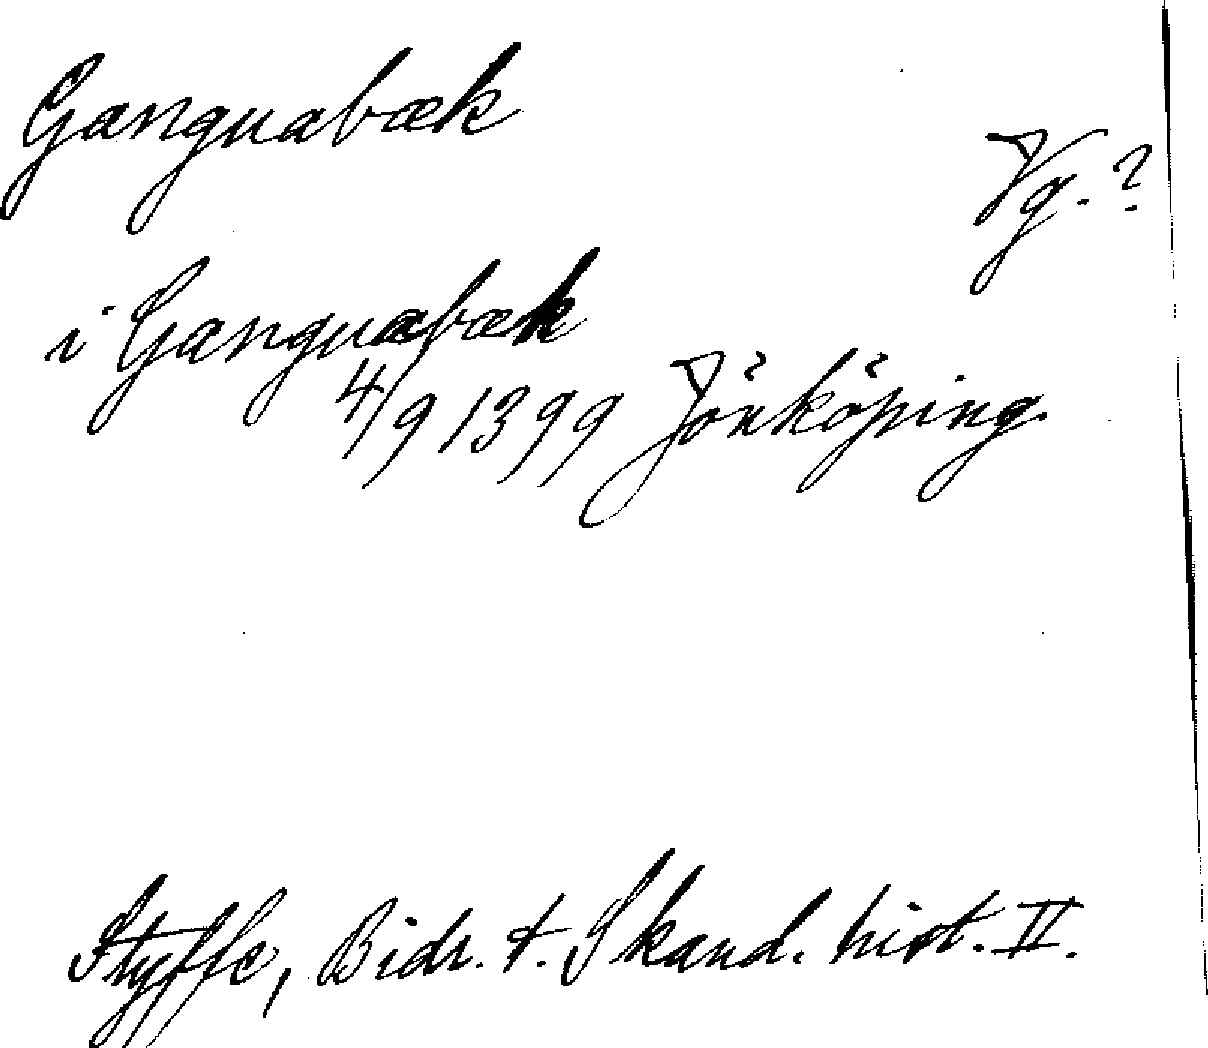 Ganguabæk
Vg. ?
i Ganguabæk
4/9 1399 Jönköping.
Styffe, Bidr. t. Skand. hist. II.